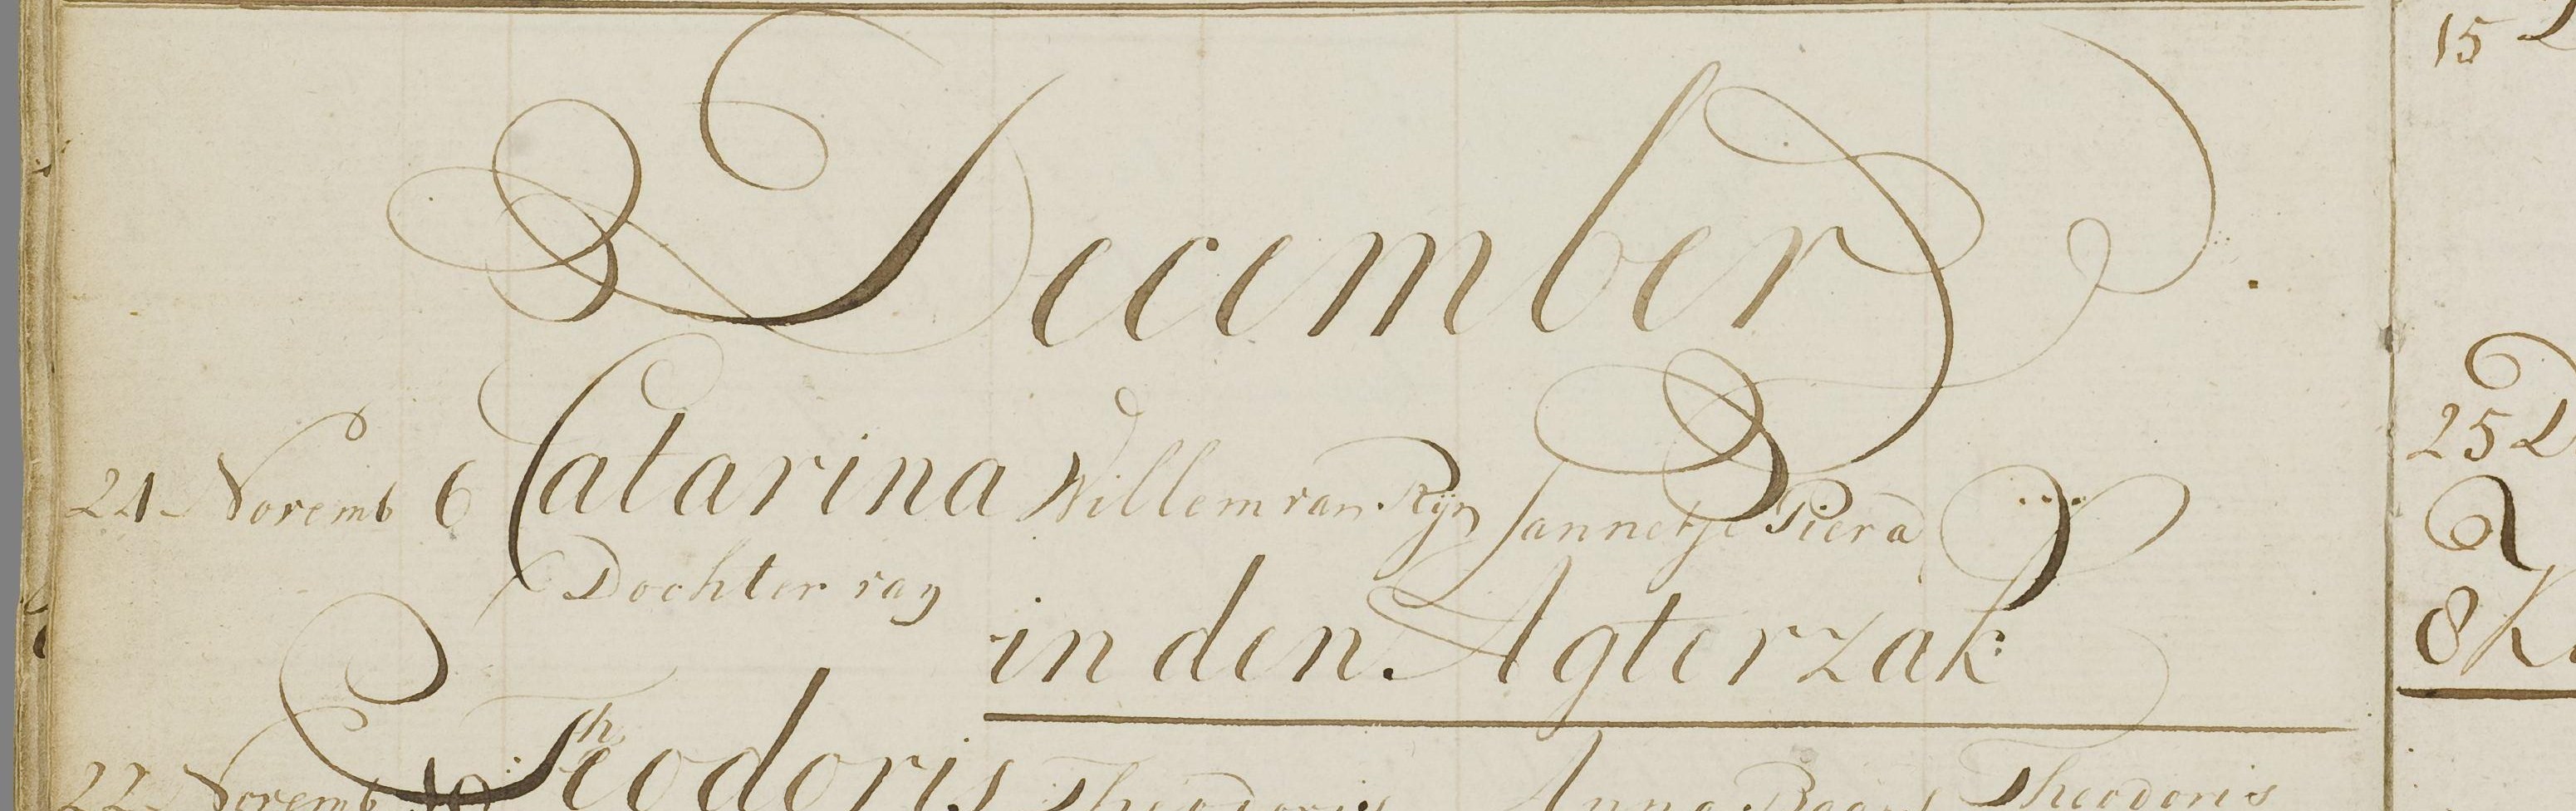 December
21 Novemb 6 Catarina Willem van Ryn Jannetje Piera
Dochter van
in den Agterzak
22 Novemb 10 Theodoris Theodoris Anna Theodoris
15
25 D
8